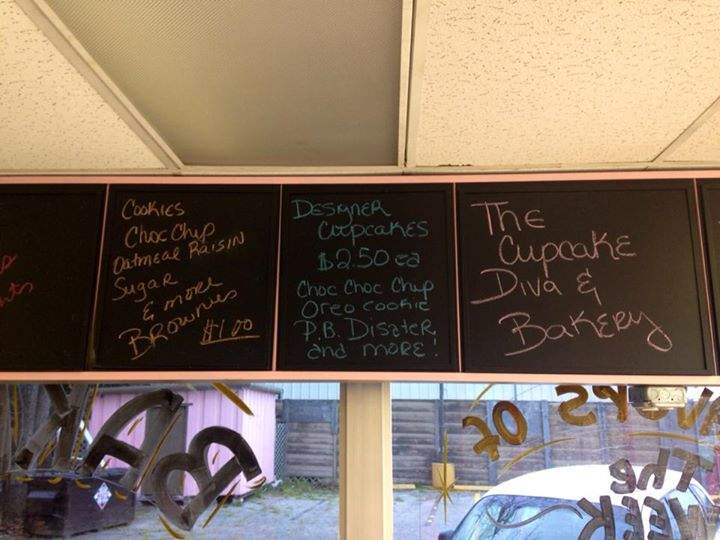 Cookies
Choc Chip
Oatmeal Raisin
Sugar
& more
Brownies
$1.00
Designer
Cupcakes
$2.50 ea
Choc Choc Chip
Oreo Cookie
P.B. Disater
and more!
The
Cupcake
Diva &
Bakery
BAK
ORS OF
The
WEEK